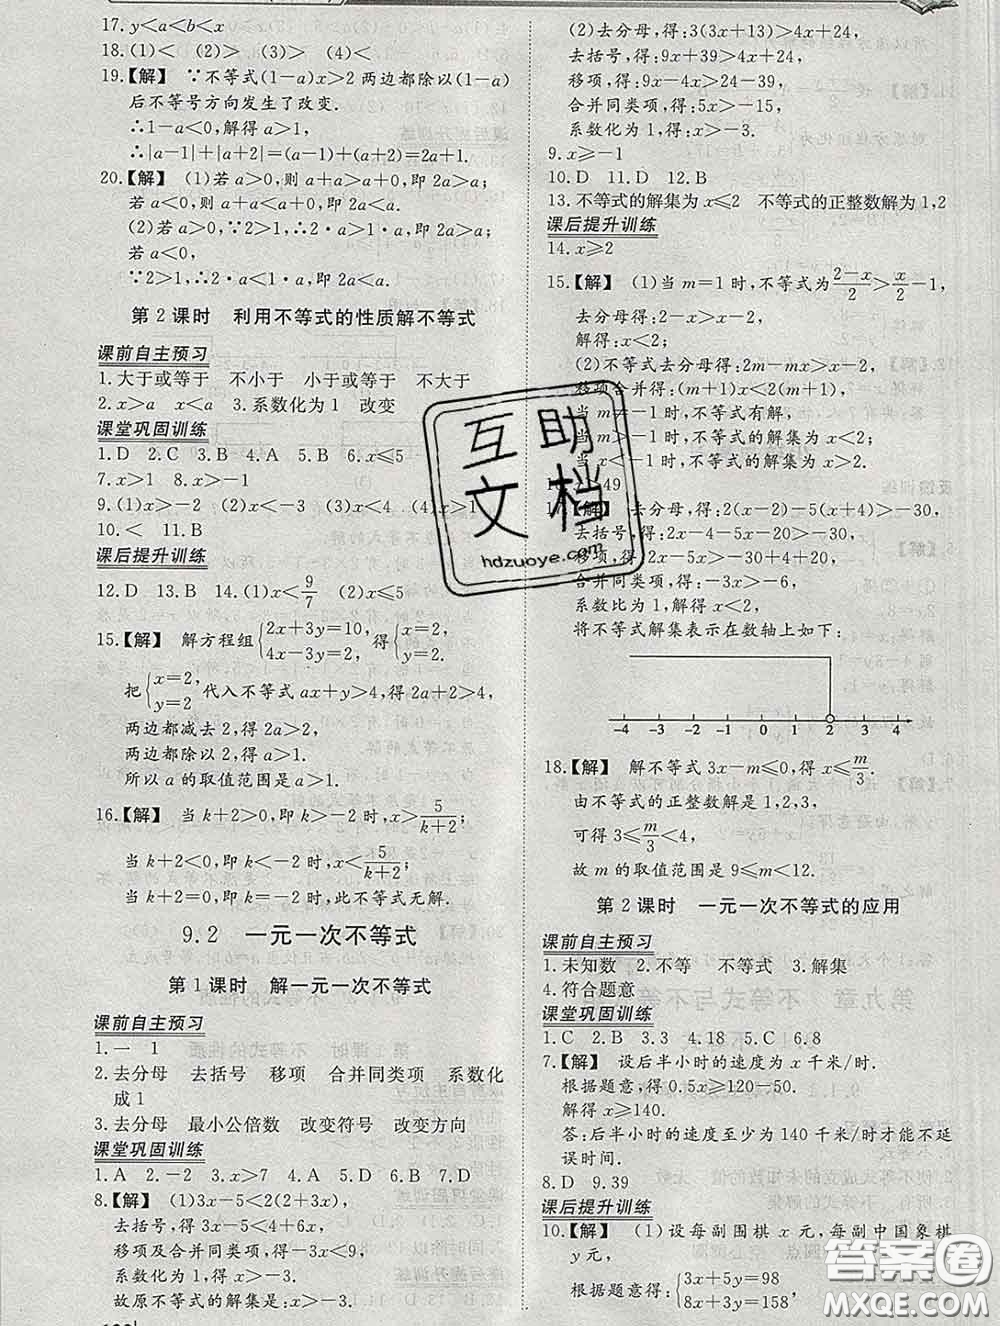 17. y<a<b<x
18. (1)< (2)> (3)> (4)<
19.【解】 ∵不等式(1-a)x>2两边都除以(1-a)
后不等号方向发生了改变.
∴1-a<0,解得a>1,
∴|a-1|+|a+2|=(a-1)+(a+2)=2a+1.
20.【解】 (1)若a>0,则a+a>a+0,即2a>a;
若a<0,则a+a<a+0,即2a<a.
(2)若a>0,∵2>1,∴2·a>1·a,即2a>a;
若a<0,
∵2>1,∴2·a<1·a,即2a<a.
第2课时 利用不等式的性质解不等式
课前自主预习
1.大于或等于 不小于 小于或等于 不大于
2. x>a x<a 3.系数化为1 改变
课堂巩固训练
1. D 2. C 3. B 4. A 5. B 6. x≤5
7. x>1 8. x>-1
9. (1)x>-2 (2)x<-3 (3)x<4 (4)x>1
10. < 11. B
课后提升训练
12. D 13. B 14. (1)x<9/7 (2)x≤5
15.【解】 解方程组{2x+3y=10, 4x-3y=2, 得{x=2, y=2,
把{x=2, y=2 代入不等式ax+y>4,得2a+2>4,
两边都减去2,得2a>2,
两边都除以2,得a>1.
所以a的取值范围是a>1.
16.【解】 当k+2>0,即k>-2时,x>5/(k+2);
当k+2<0,即k<-2时,x<5/(k+2);
当k+2=0,即k=-2时,此不等式无解.
9.2 一元一次不等式
第1课时 解一元一次不等式
课前自主预习
1.一 1
2.去分母 去括号 移项 合并同类项 系数化
成1
3.去分母 最小公倍数 改变符号 改变方向
课堂巩固训练
1. A 2. -2 3. x>7 4. A 5. D 6. B 7. D
8.【解】 (1)3x-5<2(2+3x),
去括号,得3x-5<4+6x,
移项及合并同类项,得-3x<9,
系数化为1,得x>-3.
故原不等式的解集是:x>-3.
(2)去分母,得:3(3x+13)>4x+24,
去括号,得:9x+39>4x+24,
移项,得:9x-4x>24-39,
合并同类项,得:5x>-15,
系数化为1,得:x>-3.
9. x≥-1
10. D 11. D 12. B
13.不等式的解集为x≤2 不等式的正整数解为1,2
课后提升训练
14. x≥2
15.【解】 (1)当m=1时,不等式为(2-x)/2>x/2-1,
去分母得:2-x>x-2,
解得:x<2;
(2)不等式去分母得:2m-mx>x-2,
移项合并得:(m+1)x<2(m+1),
当m≠-1时,不等式有解,
当m>-1时,不等式的解集为x<2;
当m<-1时,不等式的解集为x>2.
49
17.【解】 去分母,得:2(x-2)-5(x+4)>-30,
去括号,得:2x-4-5x-20>-30,
移项,得:2x-5x>-30+4+20,
合并同类项,得:-3x>-6,
系数比为1,得:x<2,
将不等式解集表示在数轴上如下:
-4 -3 -2 -1 0 1 2 3 4
18.【解】 解不等式3x-m≤0,得x≤m/3.
由不等式的正整数解是1,2,3,
可得3≤m/3<4,
故m的取值范围是9≤m<12.
第2课时 一元一次不等式的应用
课前自主预习
1.未知数 2.不等 不等式 3.解集
4.符合题意
课堂巩固训练
1. C 2. B 3. 3 4. 18 5. C 6. 8
7.【解】 设后半小时的速度为x千米/时.
根据题意,得0.5x≥120-50.
解得x≥140.
答:后半小时的速度至少为140千米/时才能不延
误时间.
8. D 9. 39
课后提升训练
10.【解】 (1)设每副围棋x元,每副中国象棋
y元,
根据题意得:{3x+5y=98 8x+3y=158,
互助
文档
hdzuoye.com
答案圈
MXQE.COM